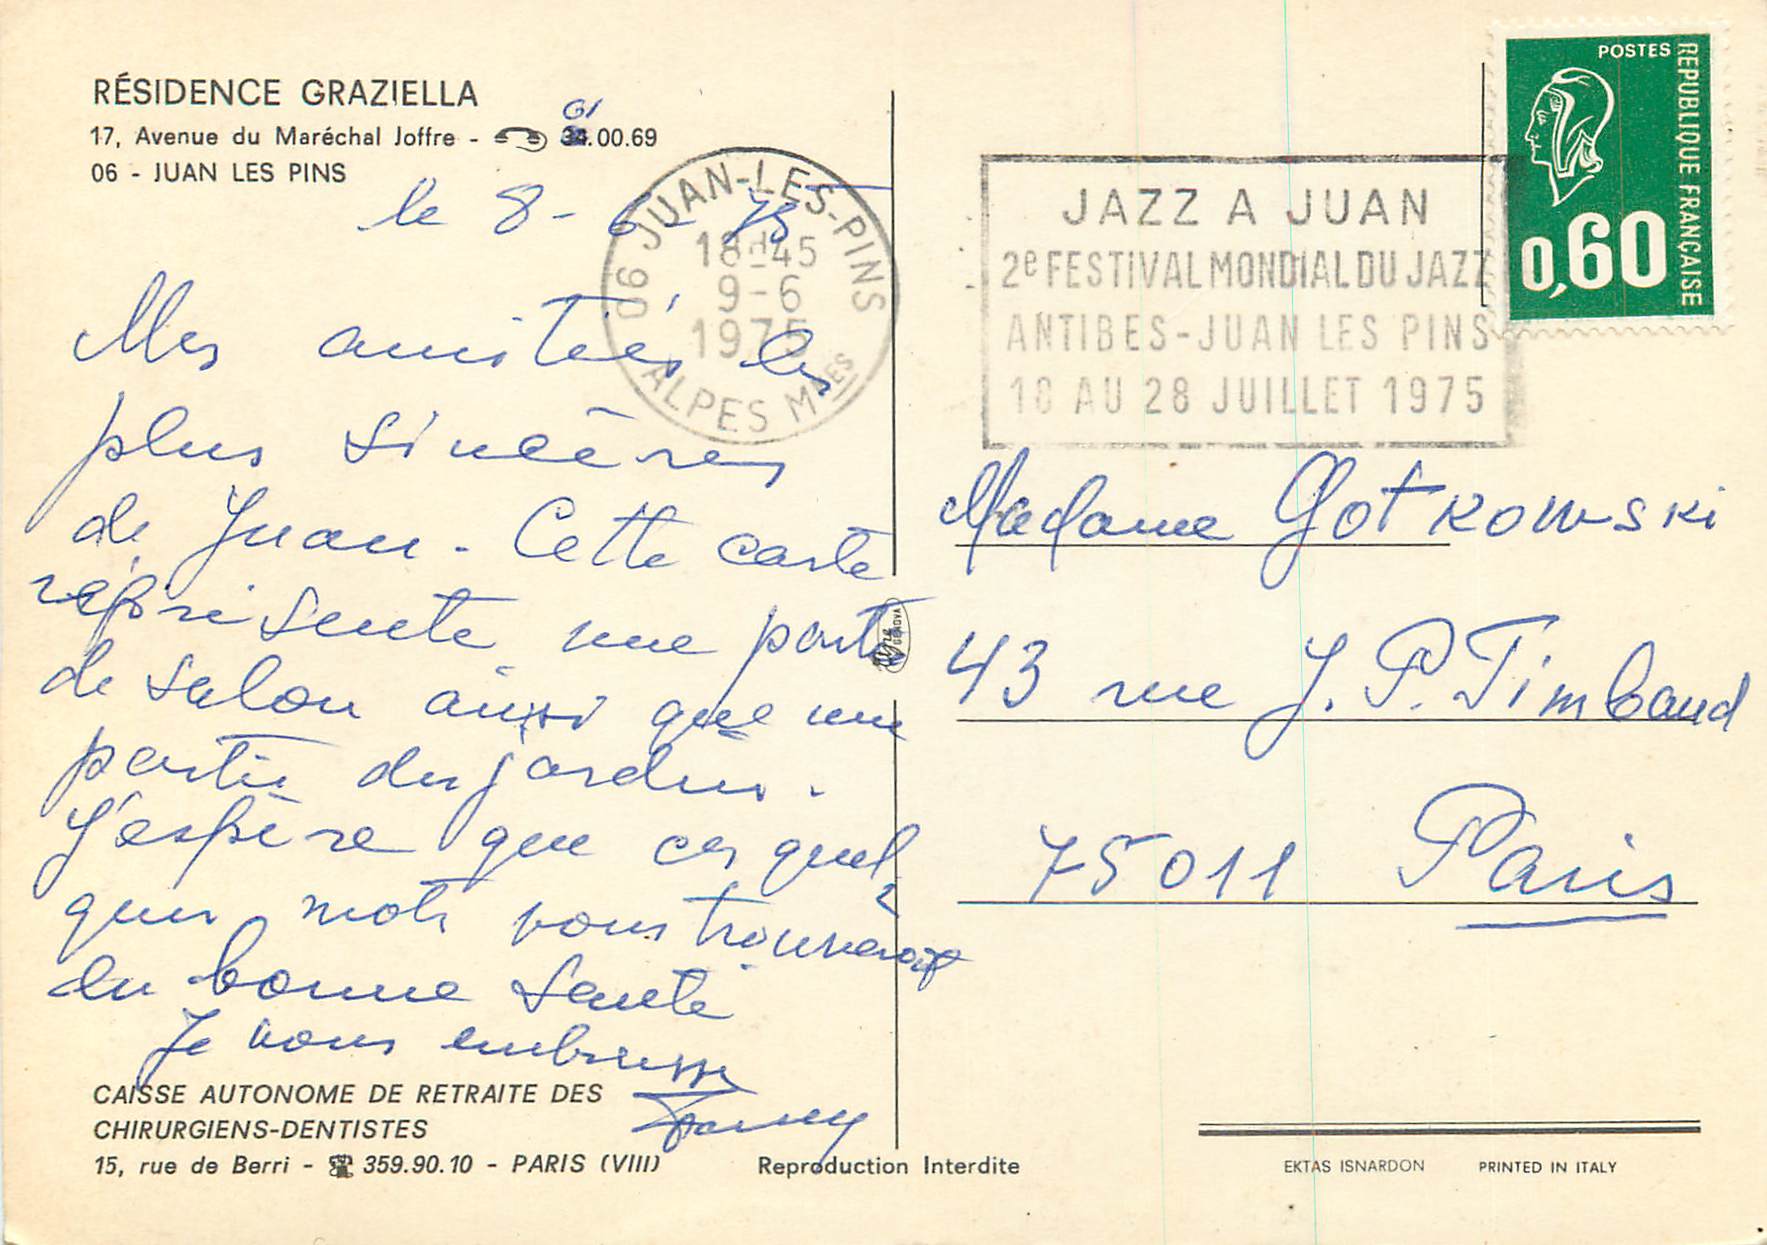 RÉSIDENCE GRAZIELLA
61
17, Avenue du Maréchal Joffre - 34.00.69
06 - JUAN LES PINS
le 8 - 6 - 75
Mes amitiés les
plus sincères
de Juan. Cette carte
représente une partie
de salon ainsi que une
partie des jardins.
J'espère que ces quel
ques mots vous trouverait
en bonne santé
Je vous embrasse
Fanny
CAISSE AUTONOME DE RETRAITE DES
CHIRURGIENS-DENTISTES
15, rue de Berri - 359.90.10 - PARIS (VIII)
Reproduction Interdite
06 JUAN-LES-PINS
18H45
9-6
1975
ALPES MMES
JAZZ A JUAN
2e FESTIVAL MONDIAL DU JAZZ
ANTIBES-JUAN LES PINS
18 AU 28 JUILLET 1975
POSTES
REPUBLIQUE FRANÇAISE
0,60
Madame Gotkowski
43 rue J. P. Timbaud
75011 Paris
GENOVA
EKTAS ISNARDON PRINTED IN ITALY